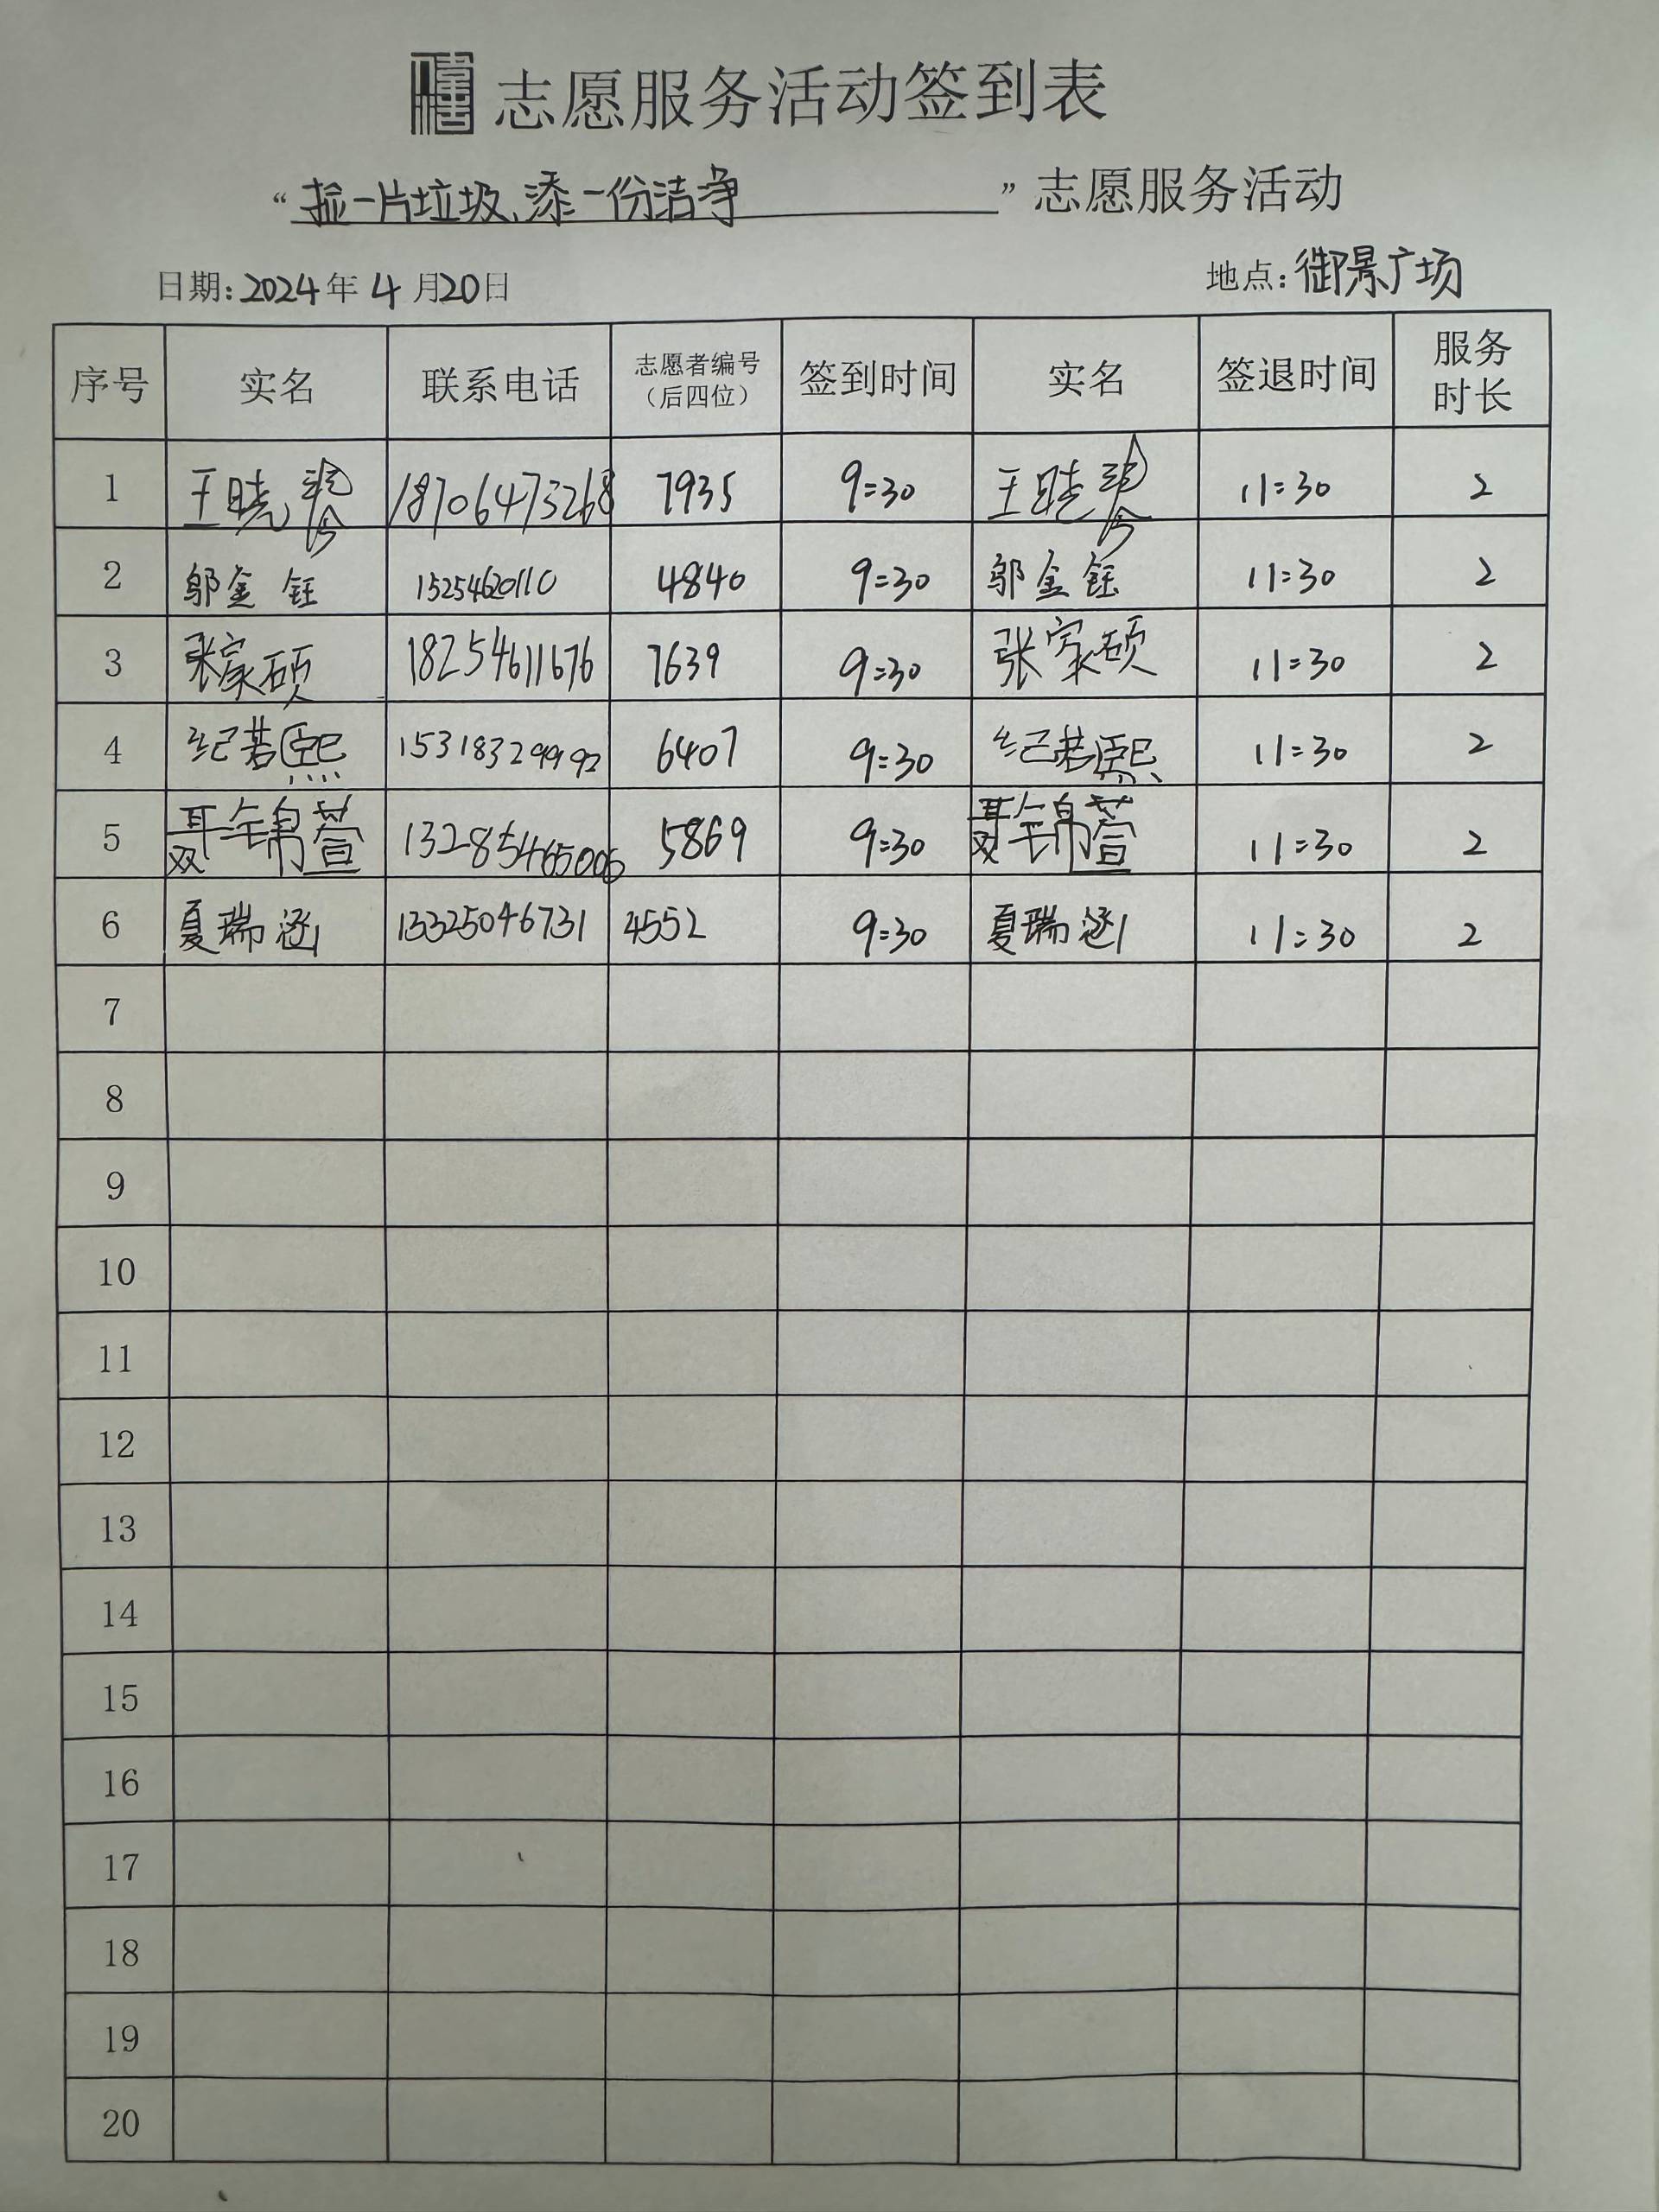 志愿服务活动签到表
“捡一片垃圾、添一份洁净”志愿服务活动
日期:2024年4月20日 地点:御景广场
序号 实名 联系电话 志愿者编号（后四位） 签到时间 实名 签退时间 服务时长
1 王晓 18706473268 7935 9:30 王晓 11:30 2
2 邬金钰 15254620110 4840 9:30 邬金钰 11:30 2
3 张家硕 18254611676 7639 9:30 张家硕 11:30 2
4 纪若熙 15318329992 6407 9:30 纪若熙 11:30 2
5 聂锦萱 13285465006 5869 9:30 聂锦萱 11:30 2
6 夏瑞涵 13325046731 4552 9:30 夏瑞涵 11:30 2
7
8
9
10
11
12
13
14
15
16
17
18
19
20